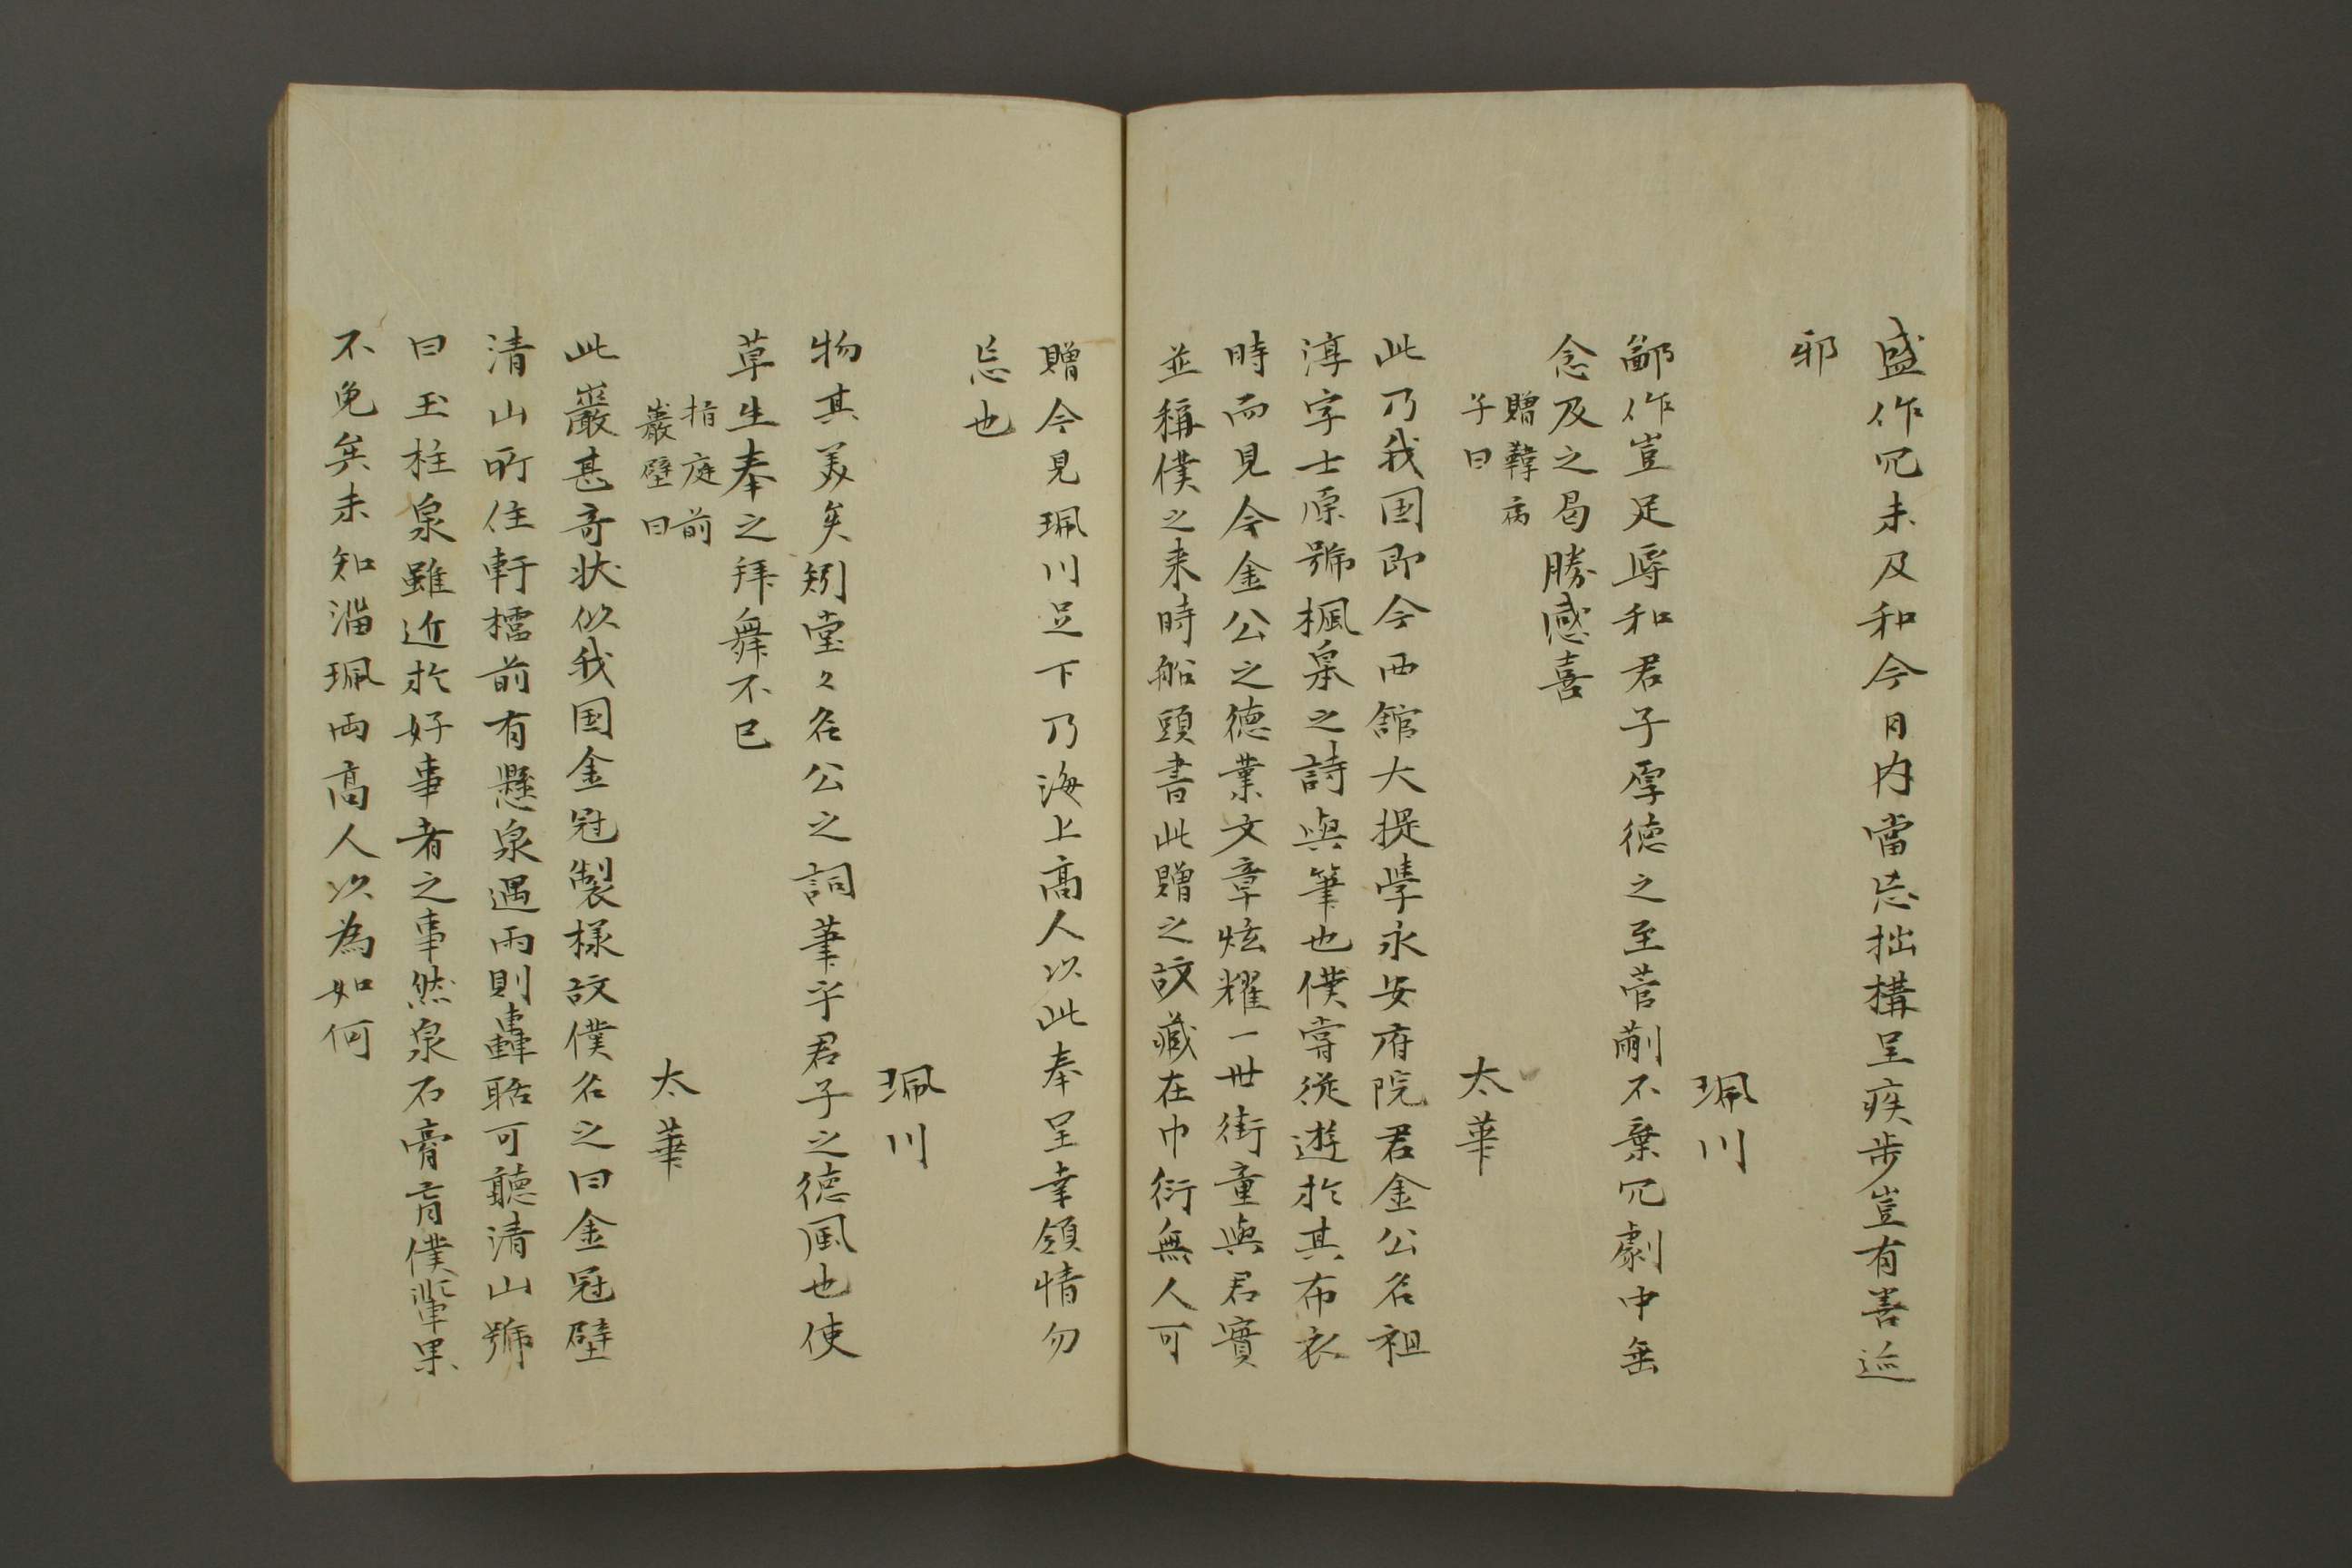 盛作冗未及和今月内當忘拙構呈疾歩豈有善巡
邪
珮川
鄙作豈足辱和君子厚徳之至菅蒯不棄冗劇中
念及之曷勝感喜
贈韓扇
子曰
太華
此乃我国即今西舘大提學永安府院君金公名祖
淳字士原號楓皐之詩與筆也僕嘗従遊於其布衣
時而見今金公之徳業文章炫耀一世街童與君實
並稱僕之来時船頭書此贈之故藏在巾衍無人可
贈今見珮川足下乃海上高人以此奉呈幸領情勿
忘也
珮川
物其美矣矧堂々名公之詞筆乎君子之徳風也使
草生奉之拜舞不已
指庭前
巖壁曰
太華
此巖甚奇状似我国金冠製様故僕名之曰金冠壁
清山所住軒櫺前有懸泉遇雨則轟聒可聽清山號
曰玉柱泉雖近於好事者之事然泉石膏肓僕輩果
不免矣未知淄珮両高人以為如何